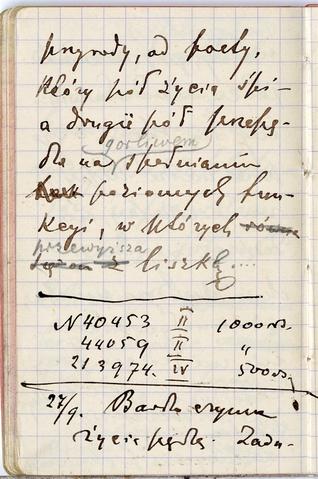 przyrody, od poety,
który pół życia śpi –
a drugie pół przepę-
gorliwem
dza na spełnianiu
poziomych fun-
kcyi, w których
przewyższa
liszkę....
N 40453 II 1000 rs.
44059 II "
213974. IV 500 rs.
27/9. Bardzo czynne
życie pędzę. Zadu-